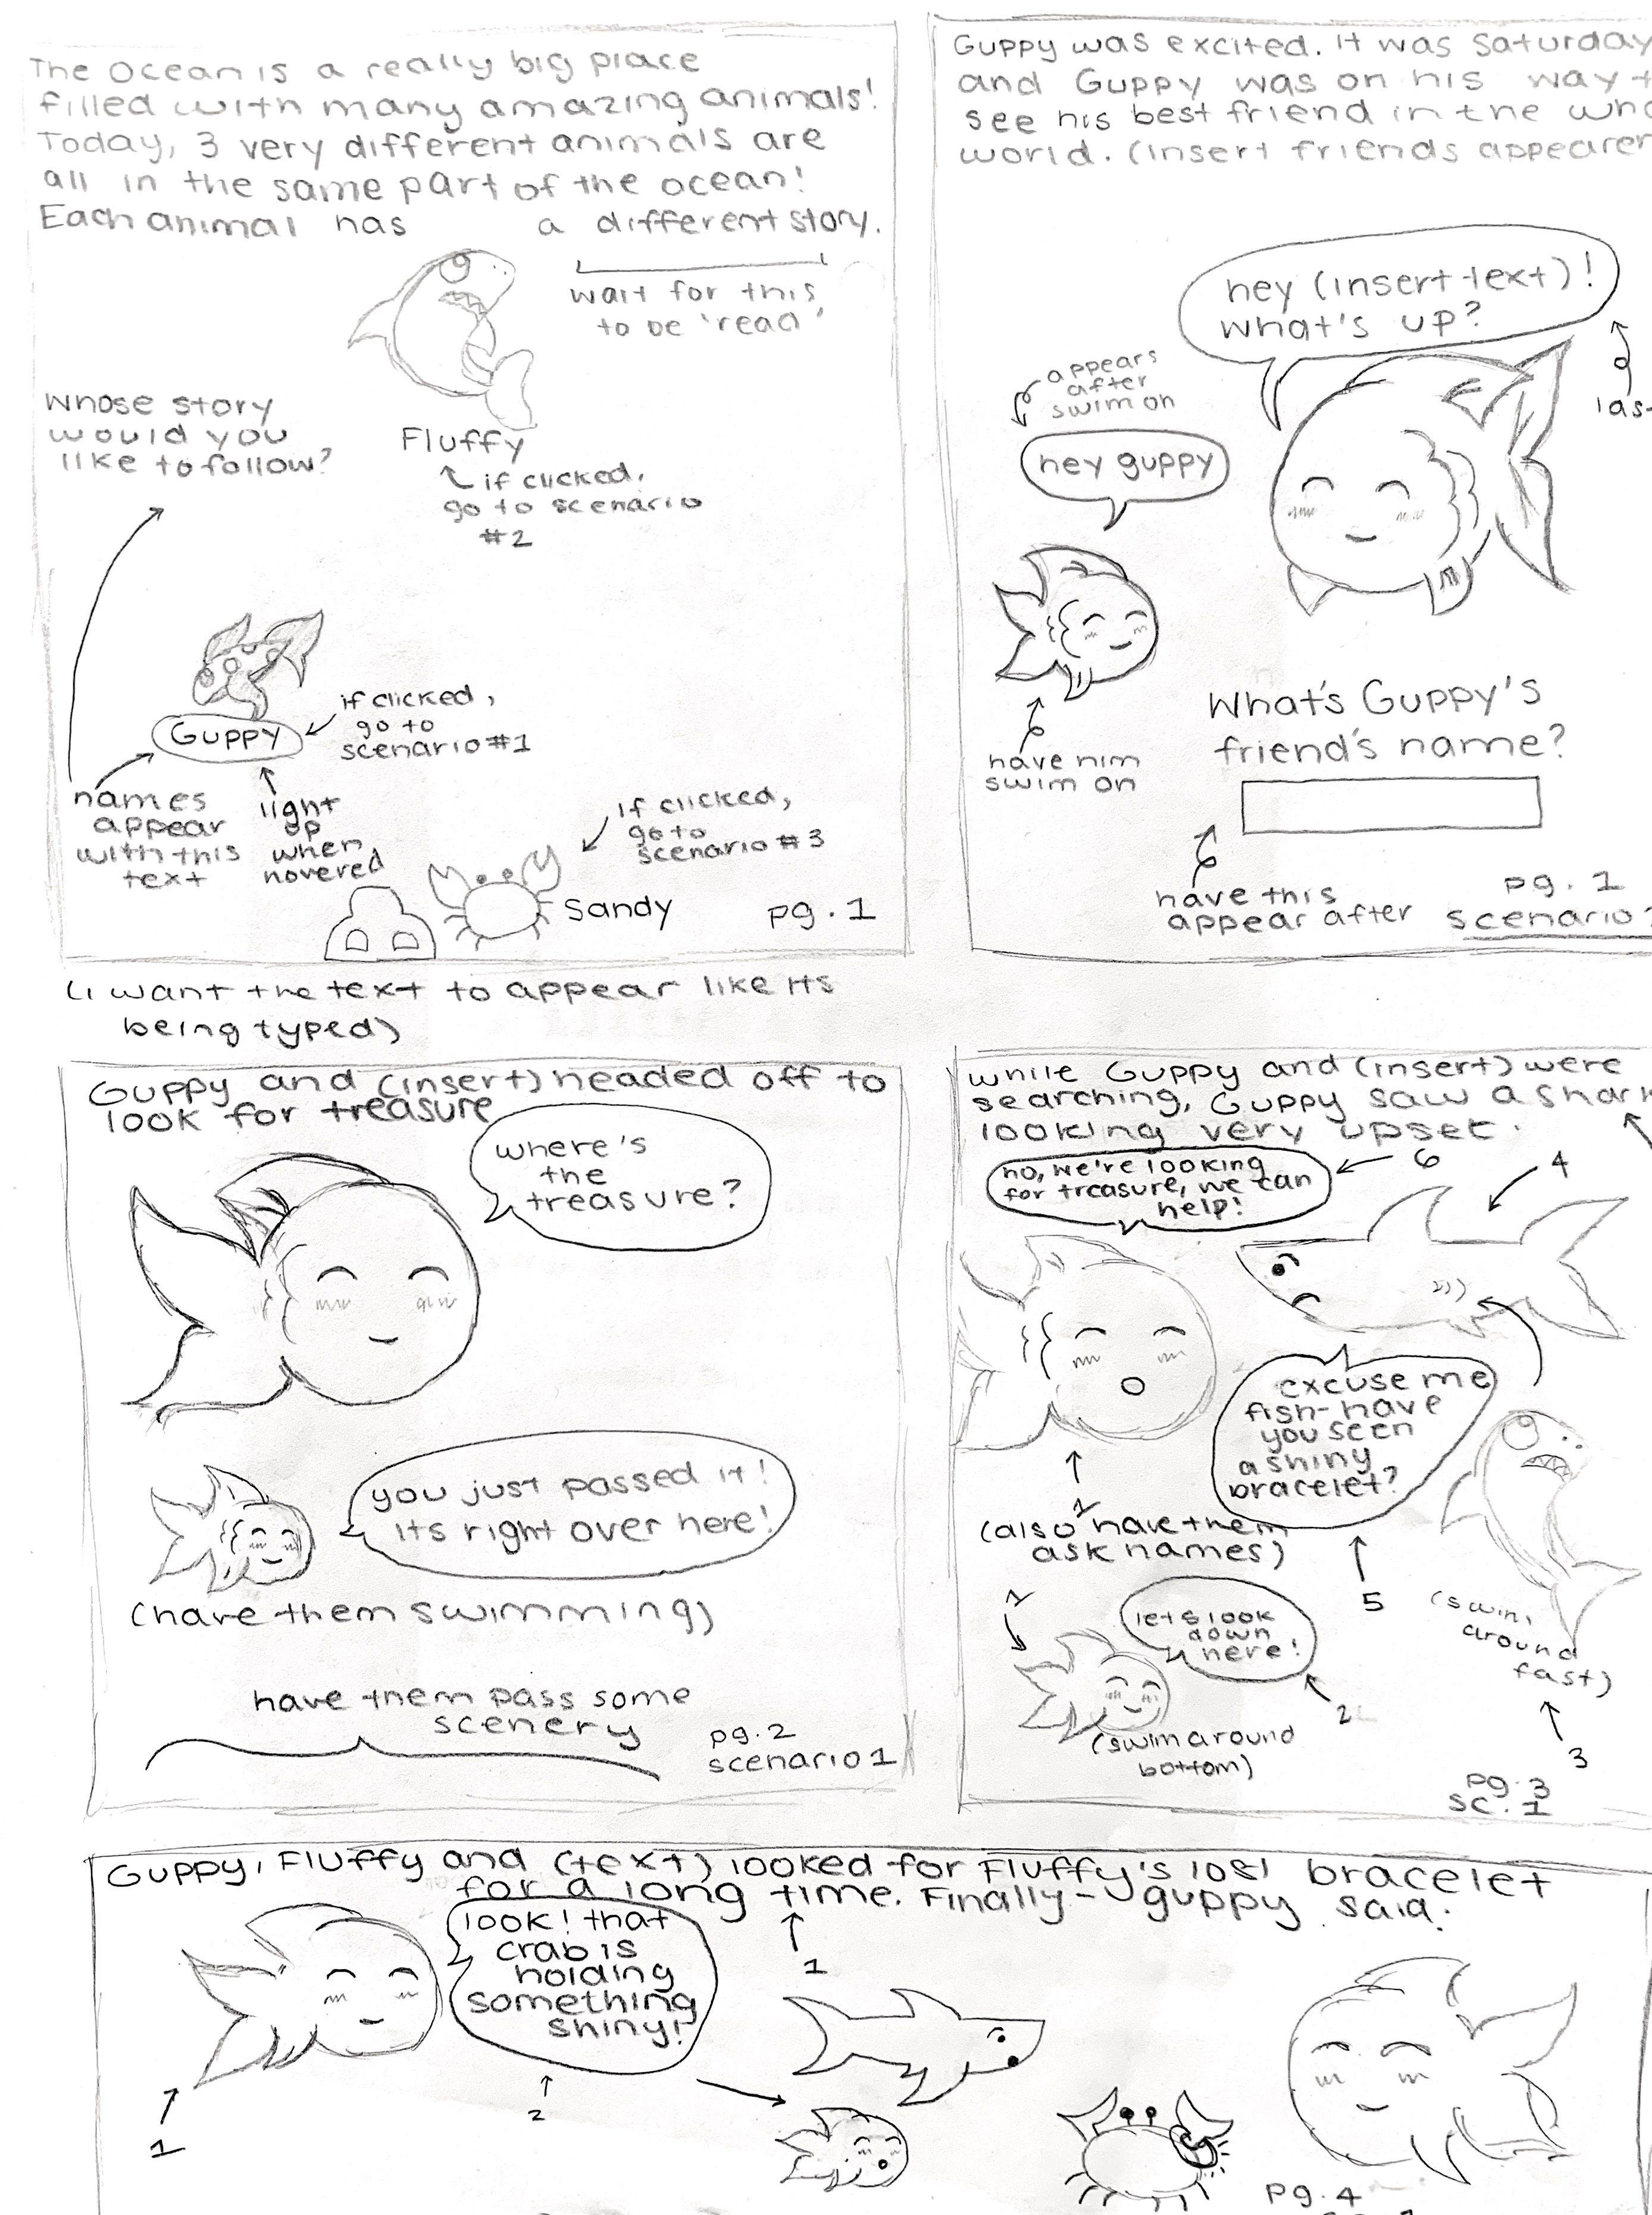 The Ocean is a really big place
filled with many amazing animals!
Today, 3 very different animals are
all in the same part of the ocean!
Each animal has a different story.
wait for this
to be 'read'
whose story
would you
like to follow?
Fluffy
if clicked,
go to scenario
#2
Guppy
if clicked,
go to
scenario #1
names
appear
with this
text
light
up
when
hovered
if clicked,
go to
scenario #3
Sandy
pg. 1
(i want the text to appear like its
being typed)
Guppy was excited. It was Saturday
and Guppy was on his way
see his best friend in the
world. (insert friends
hey (insert text)!
what's up?
appears
after
swim on
hey guppy
have him
swim on
What's Guppy's
friend's name?
have this
appear after
pg. 1
scenario
Guppy and (insert) headed off to
look for treasure
where's
the
treasure?
you just passed it!
its right over here!
(have them swimming)
have them pass some
scenery
pg. 2
scenario 1
while Guppy and (insert) were
searching, Guppy saw a shark
looking very upset.
no, we're looking
for treasure, we can
help!
6
4
excuse me
fish- have
you seen
a shiny
bracelet?
1
(also have them
ask names)
5
1
lets look
down
here!
2
(swim around
bottom)
(swim
around
fast)
3
pg. 3
sc. 1
Guppy, Fluffy and (text) looked for Fluffy's lost bracelet
for a long time. Finally- guppy said:
look! that
crab is
holding
something
shiny!
1
2
1
pg. 4